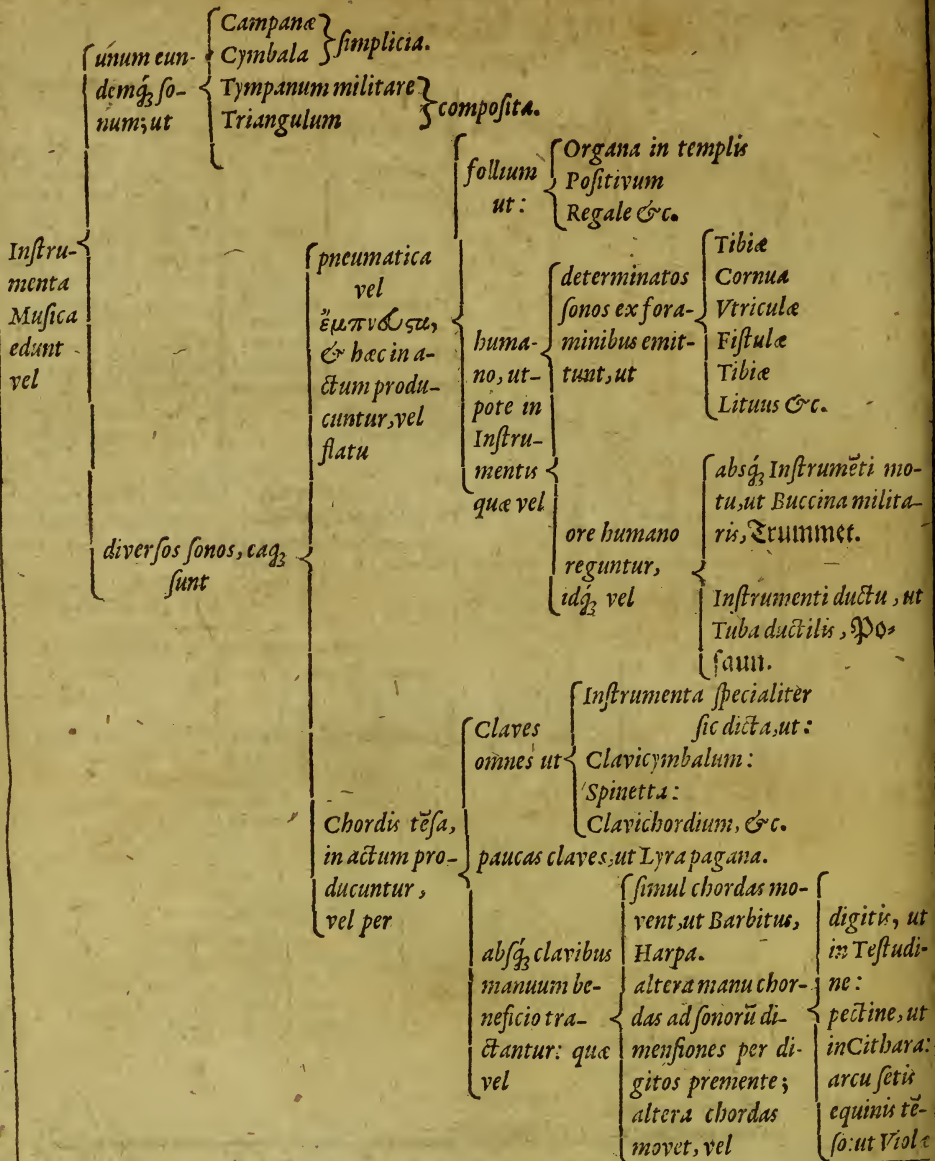 Instru-
menta
Musica
edunt
vel
unum eun-
demq́ꝫ so-
num; ut
Campanæ
Cymbala
simplicia.
Tympanum militare
Triangulum
composita.
diversos sonos, eaqꝫ
sunt
pneumatica
vel
ἔμπνευστα,
& hæc in a-
ctum produ-
cuntur, vel
flatu
follium
ut:
Organa in templis
Positivum
Regale &c.
huma-
no, ut-
pote in
Instru-
mentis
quæ vel
determinatos
sonos ex fora-
minibus emit-
tunt, ut
Tibiæ
Cornua
Vtriculæ
Fistulæ
Tibiæ
Lituus &c.
ore humano
reguntur,
idq́ꝫ vel
absq́ꝫ Instrumẽti mo-
tu, ut Buccina milita-
ris, Trummet.
Instrumenti ductu, ut
Tuba ductilis, Po-
saun.
Chordis tẽsa,
in actum pro-
ducuntur,
vel per
Claves
omnes ut
Instrumenta specialiter
sic dicta, ut:
Clavicymbalum:
Spinetta:
Clavichordium, &c.
paucas claves, ut Lyra pagana.
absq́ꝫ clavibus
manuum be-
neficio tra-
ctantur: quæ
vel
simul chordas mo-
vent, ut Barbitus,
Harpa.
altera manu chor-
das ad sonorũ di-
mensiones per di-
gitos premente;
altera chordas
movet, vel
digitis, ut
in Testudi-
ne:
pectine, ut
in Cithara:
arcu setis
equinis tẽ-
so: ut Violæ